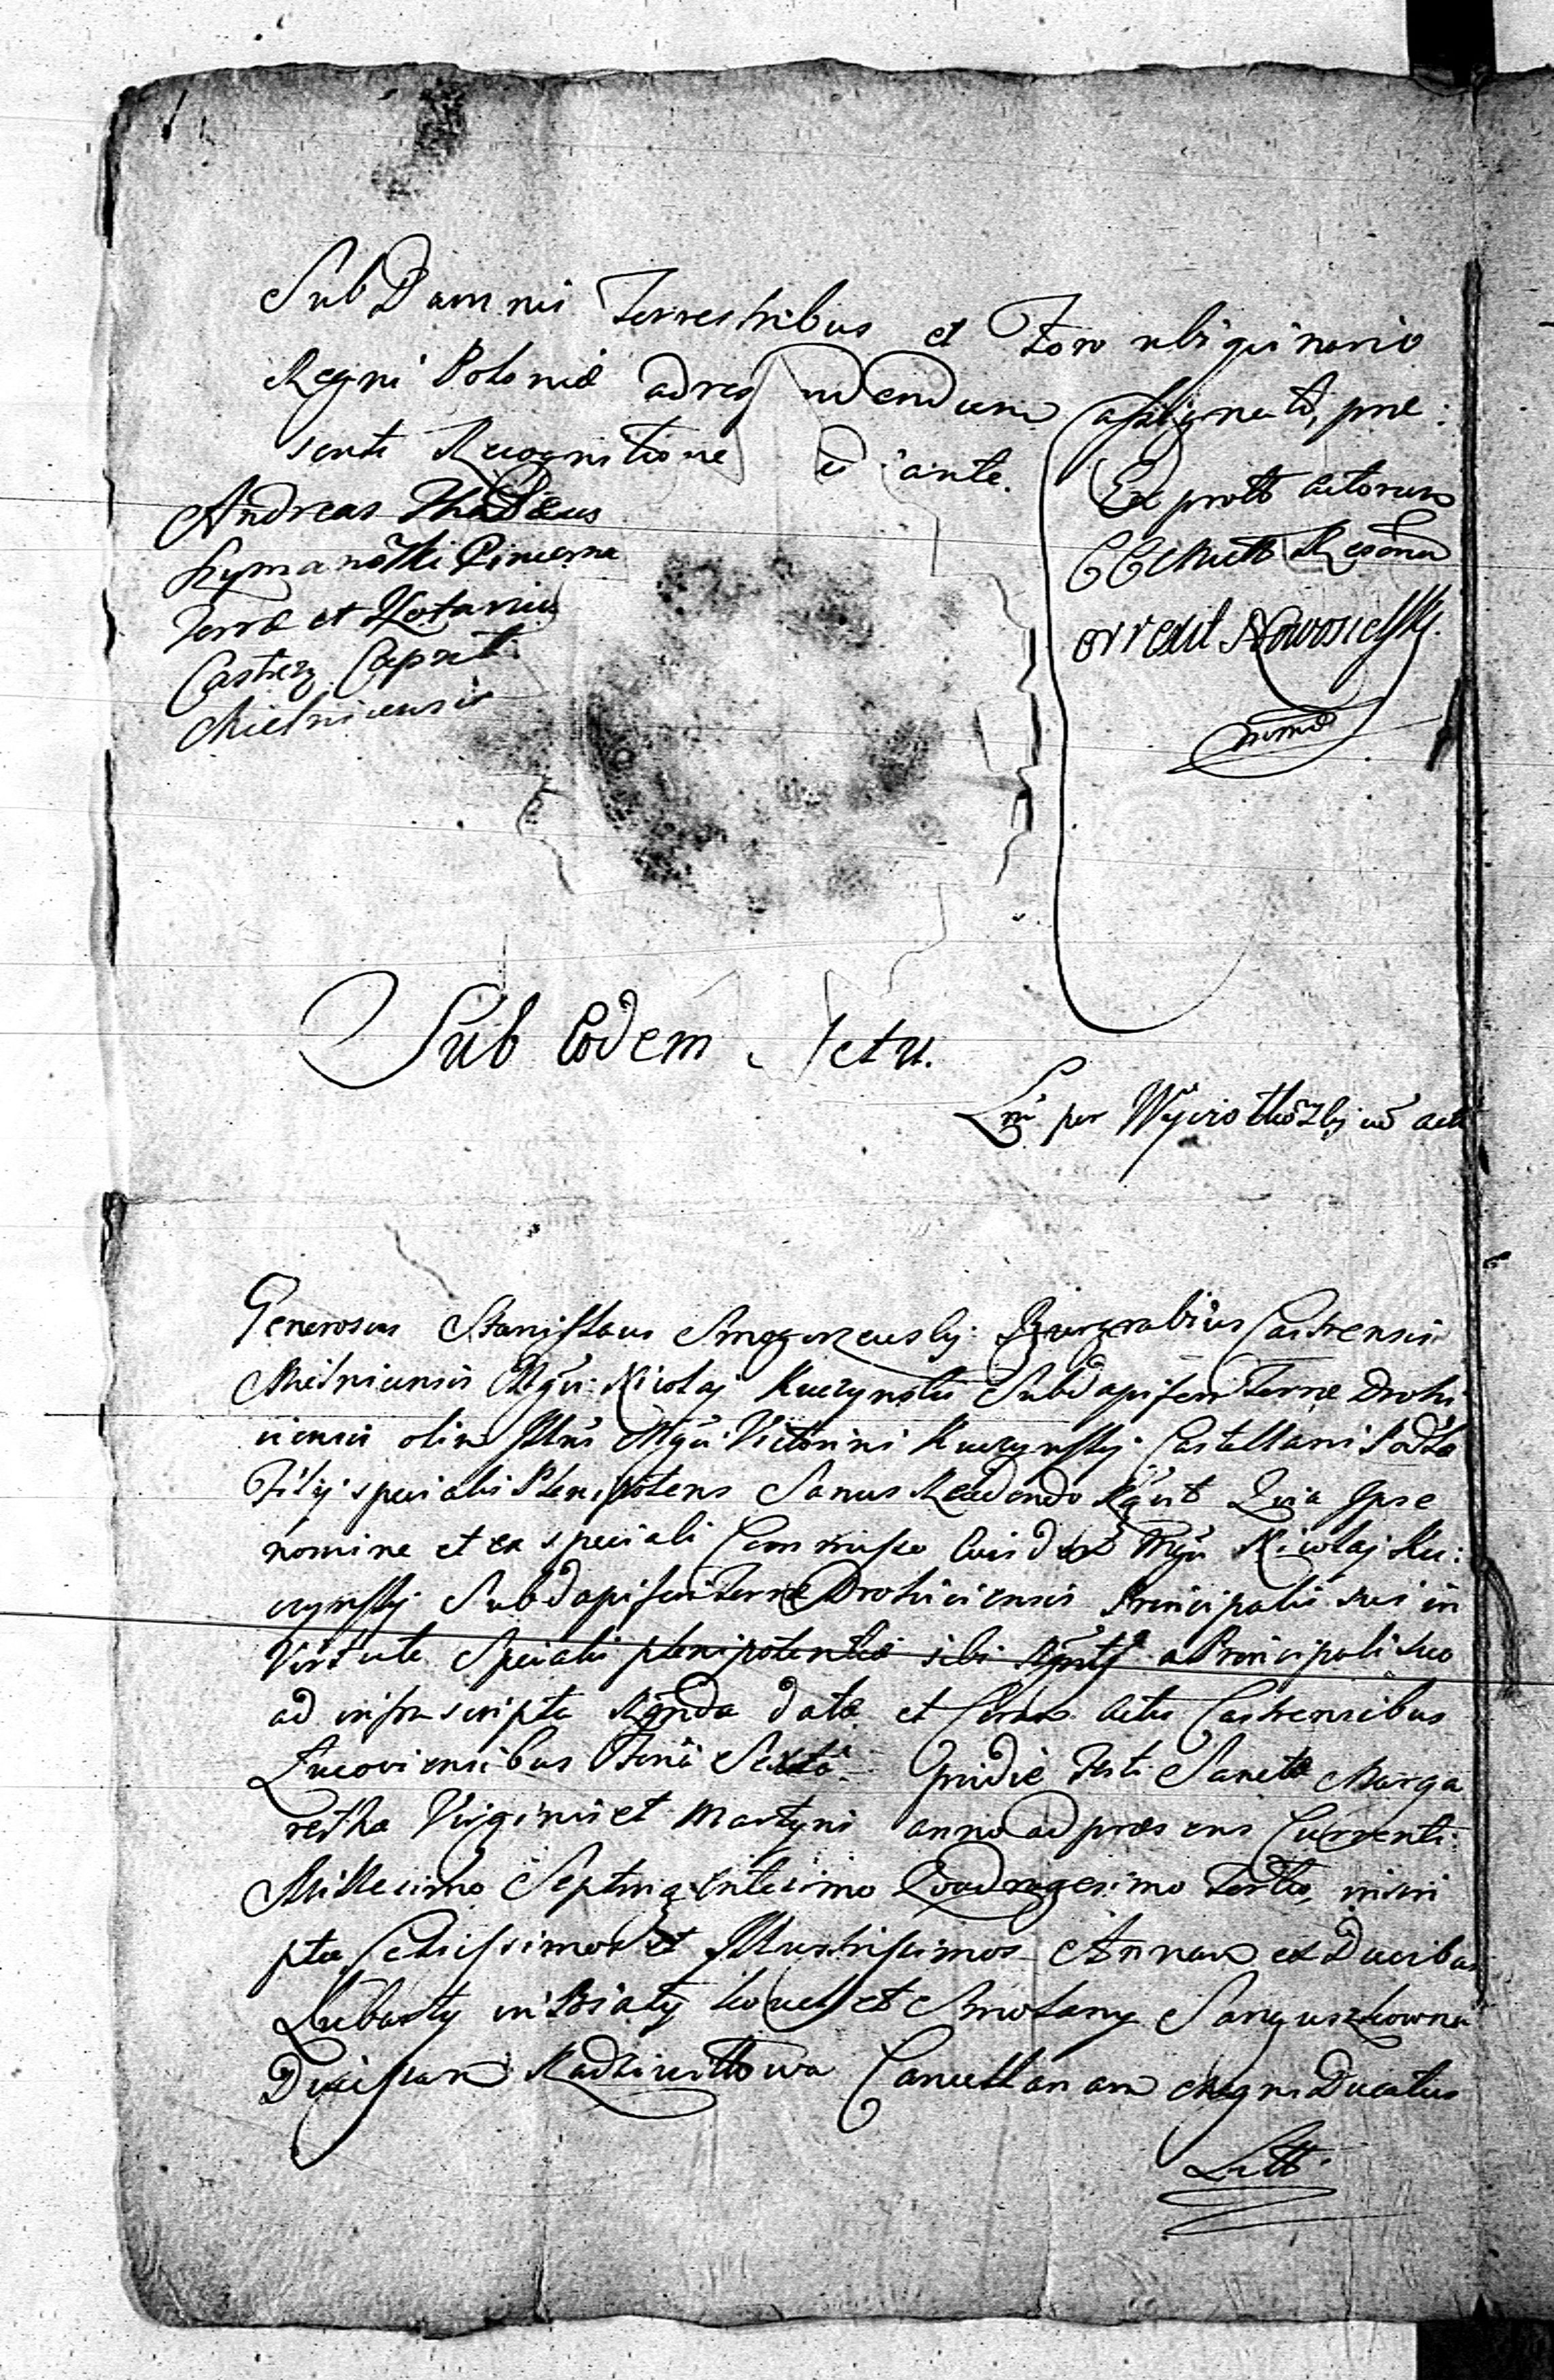 Sub Damnis Terrestribus et Foro ubiquinario
Regni Poloniæ ad respondendum assignato, præ:
senti Recognitione diante.
Andreas Thadæus
Szymański Pincerna
Terræ et Notarius
Castren. Capnt.
Mielnicensis
Ex protto actorum
CCMielt
orrexit Nowosielski
mmp
Sub Eodem Actu.
per
Generosus Stanislaus Smogorzewskij Burgrabius Castrensis
Mielnicensis Mgci Nicolaj Kuczynskij Subdapiferi Terræ Drohi
ciensis olim Illris Mgci Victorini Kuczynskij Castellani Podla
Filij specialis Plenipotens Sanus Recedendo Rgvit Quia Ipse
nomine et ex speciali Commisso Mgci Nicolaj Ku:
czynskij Subdapiferi Terræ Drohiciensis Principalis sui in
Virtute Specialis plenipotentiæ sibi a Principali suo
ad infra scripta datæ et Coram Actis Castrensibus
Lucoviensibus Feria Sexta pridie Festi Sanctæ Marga
rethæ Virginis et Martyris anno ad præsens Currenti:
Millesimo Septuagentesimo Quadragesimo Tertio, inscri
ptæ Celsissimos et Illustrissimos Annam ex Ducibus
Lubarty in Biały Kowel et Smolany Sanguszkowna
Ducissam Radziwiłłowa Cancellariam Magni Ducatus
Litt: